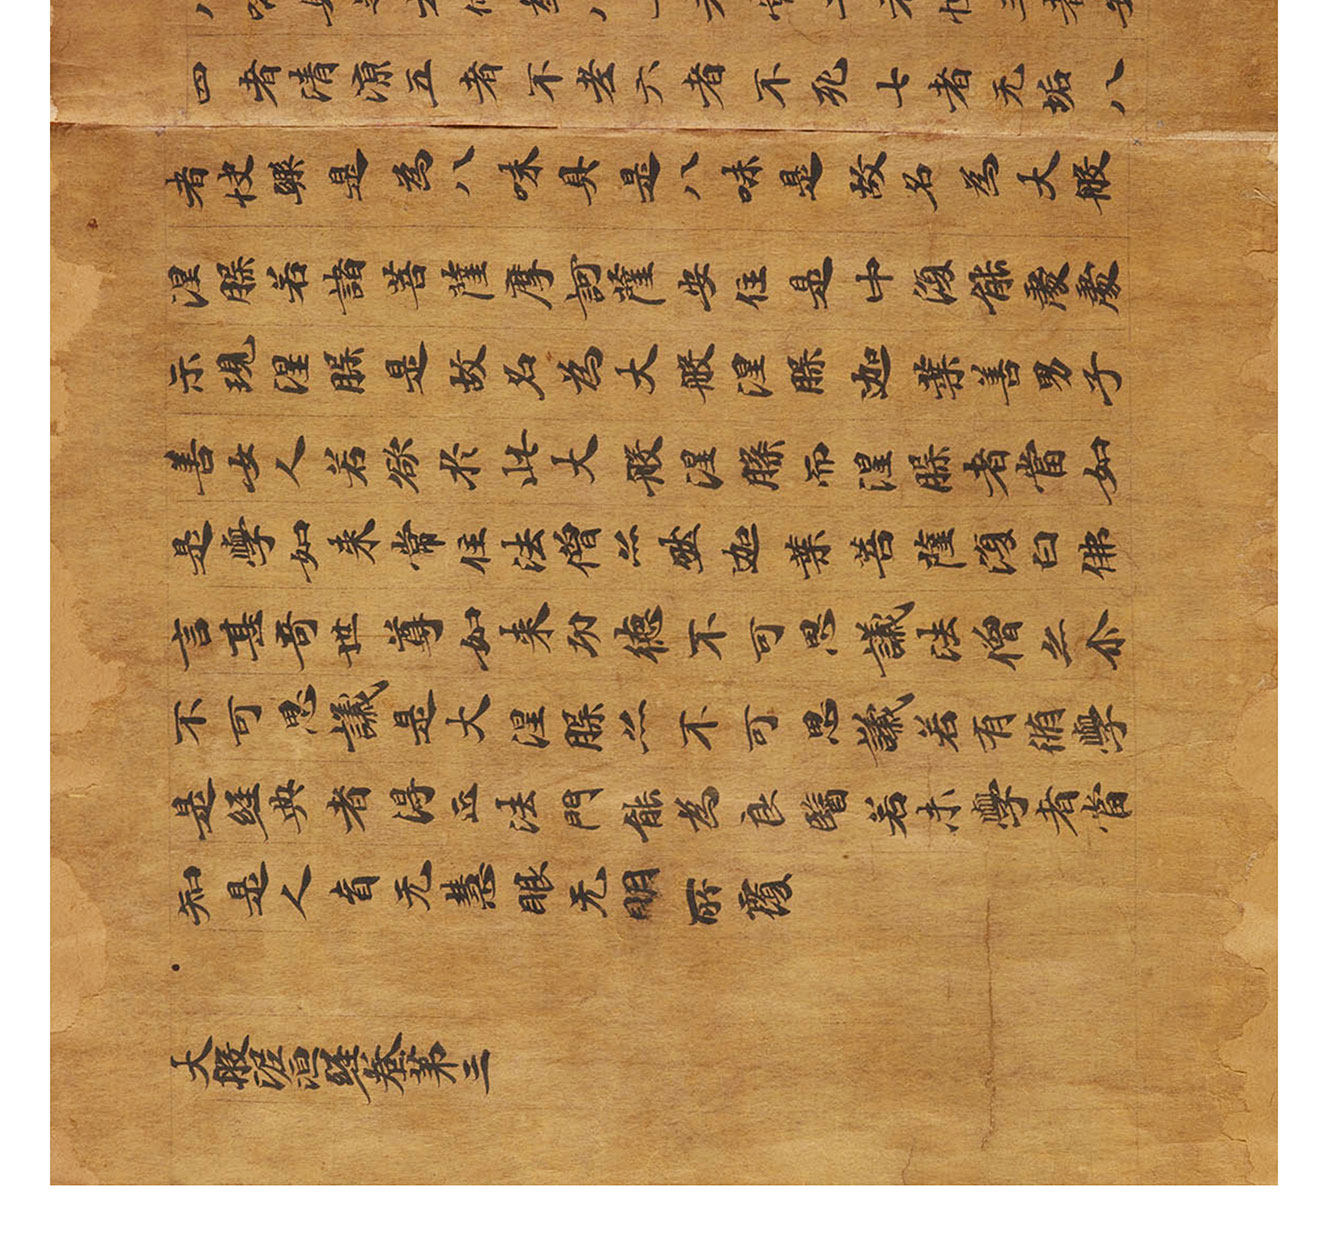 四者清涼五者不老六者不死七者无垢八
者快樂是為八味具足八味是故名為大般
涅槃若諸菩薩摩訶薩安住是中復能處處
示現涅槃是故名為大般涅槃迦葉善男子
善女人若欲於此大般涅槃而涅槃者當如
是學如来常住法僧亦然迦葉菩薩復白佛
言甚奇世尊如来功德不可思議法僧亦尒
不可思議是大涅槃亦不可思議若有脩學
是經典者得正法門能為良醫若未學者當
知是人盲无慧眼无明所覆
大般涅槃經卷第三